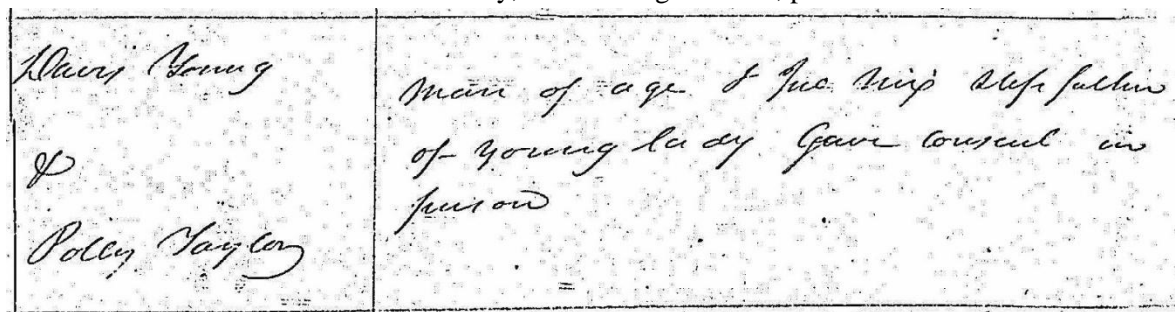 Davis Young
&
Polly Taylor
man of age & Jno Nix step father
of young lady Gave consent in
person